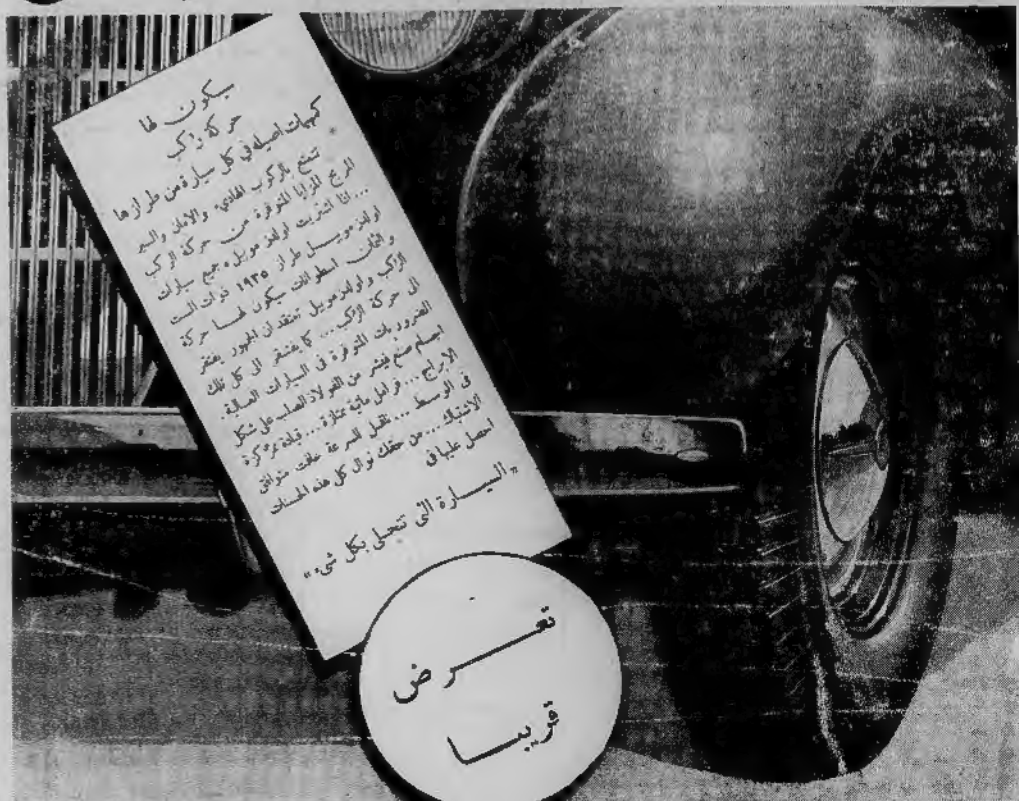 سيكون لها
حركة ركب
كمهمات اصيله في كل سيارة من طرازها
تمتع بالركوب الهادىء والامان والسير
المريح المزايا المتوفرة من حركة الركب
... اذا اشتريت اولدزموبيل، جميع سيارات
اولدزموبيل طراز ١٩٣٥ ذوات الست
والثمان اسطوانات سيكون لها حركة
الركب واولدزموبيل تعتقد ان الجمهور يفتقر
الى حركة الركب... كما يفتقر الى كل تلك
الضروريات المتوفرة في السيارات العالية.
اجسام صنع فيشر من الفولاذ الصلب على شكل
الابراج... فرامل مائية ممتازة... قيادة مركزة
في الوسط... نقل السرعة خافت متوافق
الاشتباك... من حقك نوال كل هذه الحسنات
احصل عليها في
«السيارة التى تتحلى بكل شىء»
تعرض
قريبا